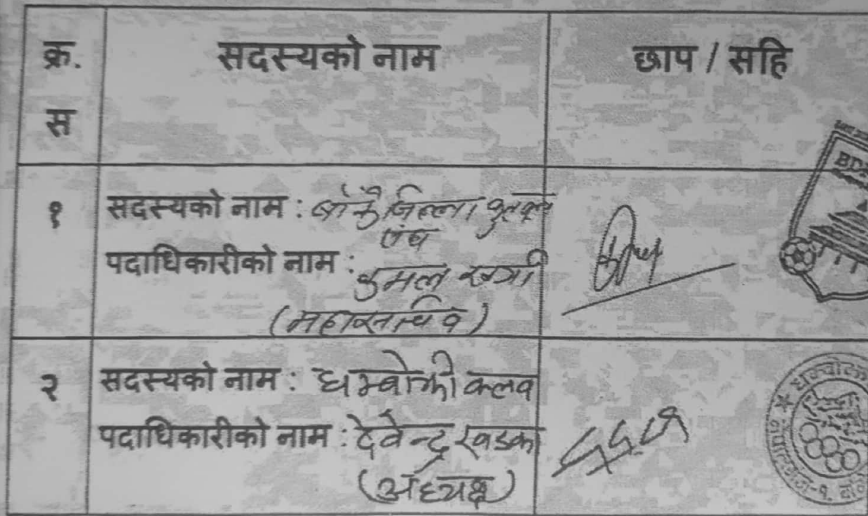 क्र. स
सदस्यको नाम
छाप / सहि
१
सदस्यको नाम : बाँके जिल्ला फुटबल
संघ
पदाधिकारीको नाम :
(महासचिव)
२
सदस्यको नाम : धम्बोझी क्लव
पदाधिकारीको नाम : देवेन्द्र खडका
(अध्यक्ष)